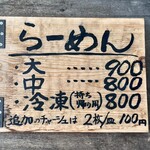 らーめん
・大……900
中……800
・冷凍(持ち帰り用)800
追加のチャーシュは2枚/皿100円